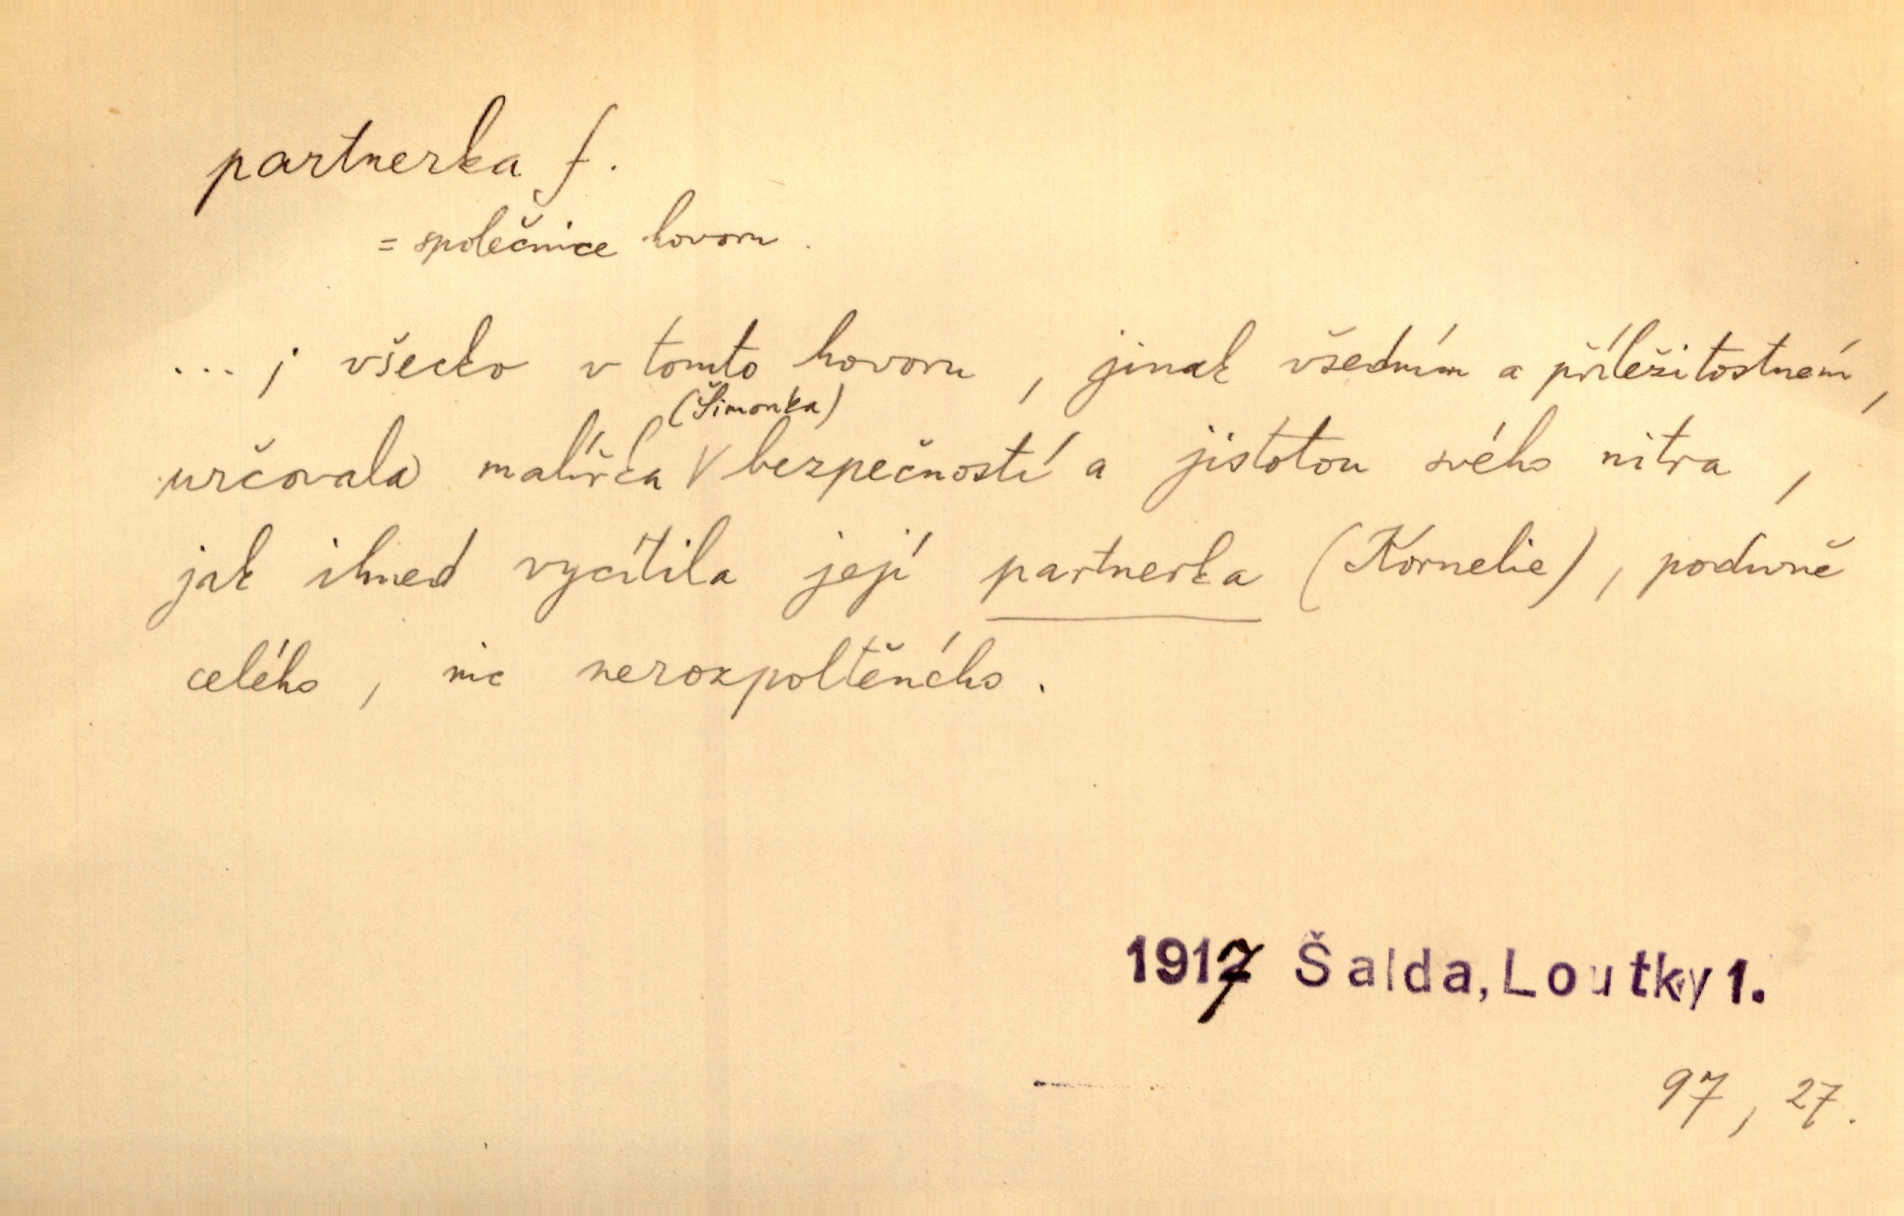 partnerka f.
= společnice hovoru.
...; všecko v tomto hovoru, jinak všedním a příležitostném,
(Šimonka)
určovala malířka V bezpečností a jistotou svého nitra,
jak ihned vycítila její partnerka (Kornelie), podivně
celého, nic nerozpoltěného.
1917 Šalda, Loutky 1.
97, 27.